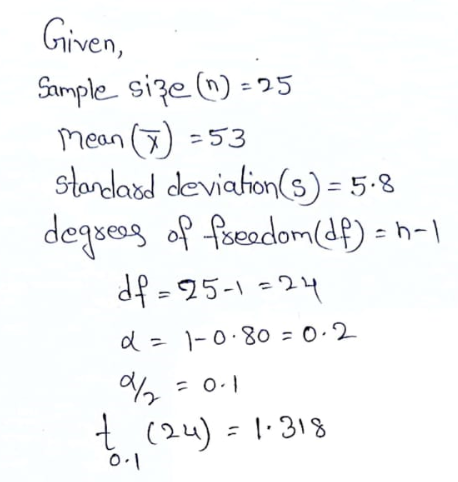 Given,
Sample size (n) = 25
mean (x̄) = 53
standard deviation(s) = 5.8
degrees of freedom(df) = n-1
df = 25-1 = 24
α = 1-0.80 = 0.2
α/2 = 0.1
t0.1 (24) = 1.318